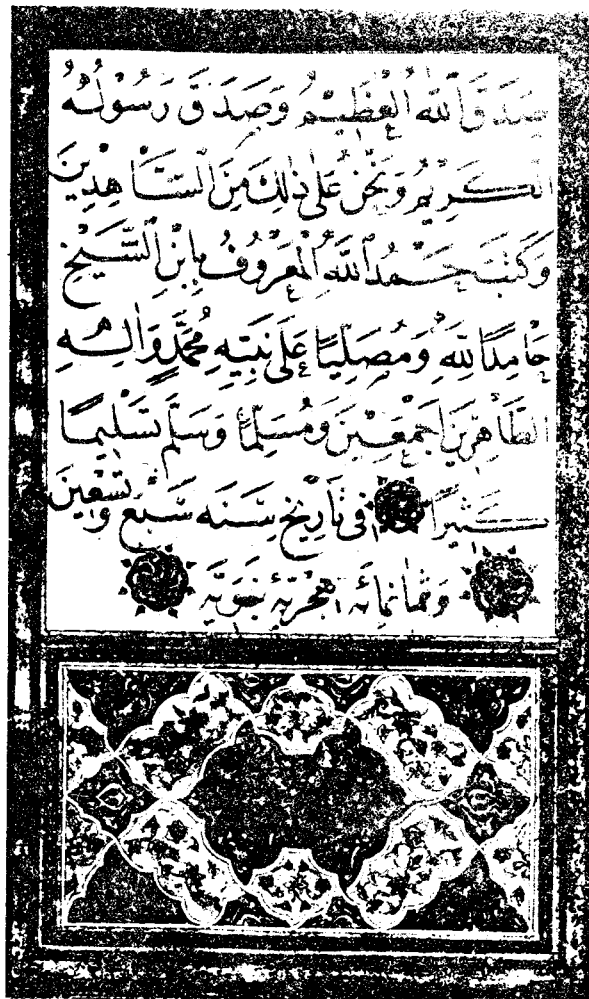 صَدَقَ ٱللهُ ٱلْعَظِيمُ وَصَدَقَ رَسُولُهُ
الْكَرِيمُ وَنَحْنُ عَلَىٰ ذٰلِكَ مِنَ الشَّاهِدِينَ
وَكَتَبَ حَمْدُ ٱللهِ الْمَعْرُوفُ بِابْنِ الشَّيْخِ
حَامِدًا لِلهِ وَمُصَلِّيًا عَلَىٰ نَبِيِّهِ مُحَمَّدٍ وَاٰلِهِ
الطَّاهِرِينَ اَجْمَعِينَ وَمُسَلِّمًا وَسَلَّمَ تَسْلِيمًا
كَثِيرًا فِى تَارِيخِ سَنَه سَبْعٍ وَتِسْعِينَ
وَثَمَانِمَائَه هِجْرِيَّه نَبَوِيَّه